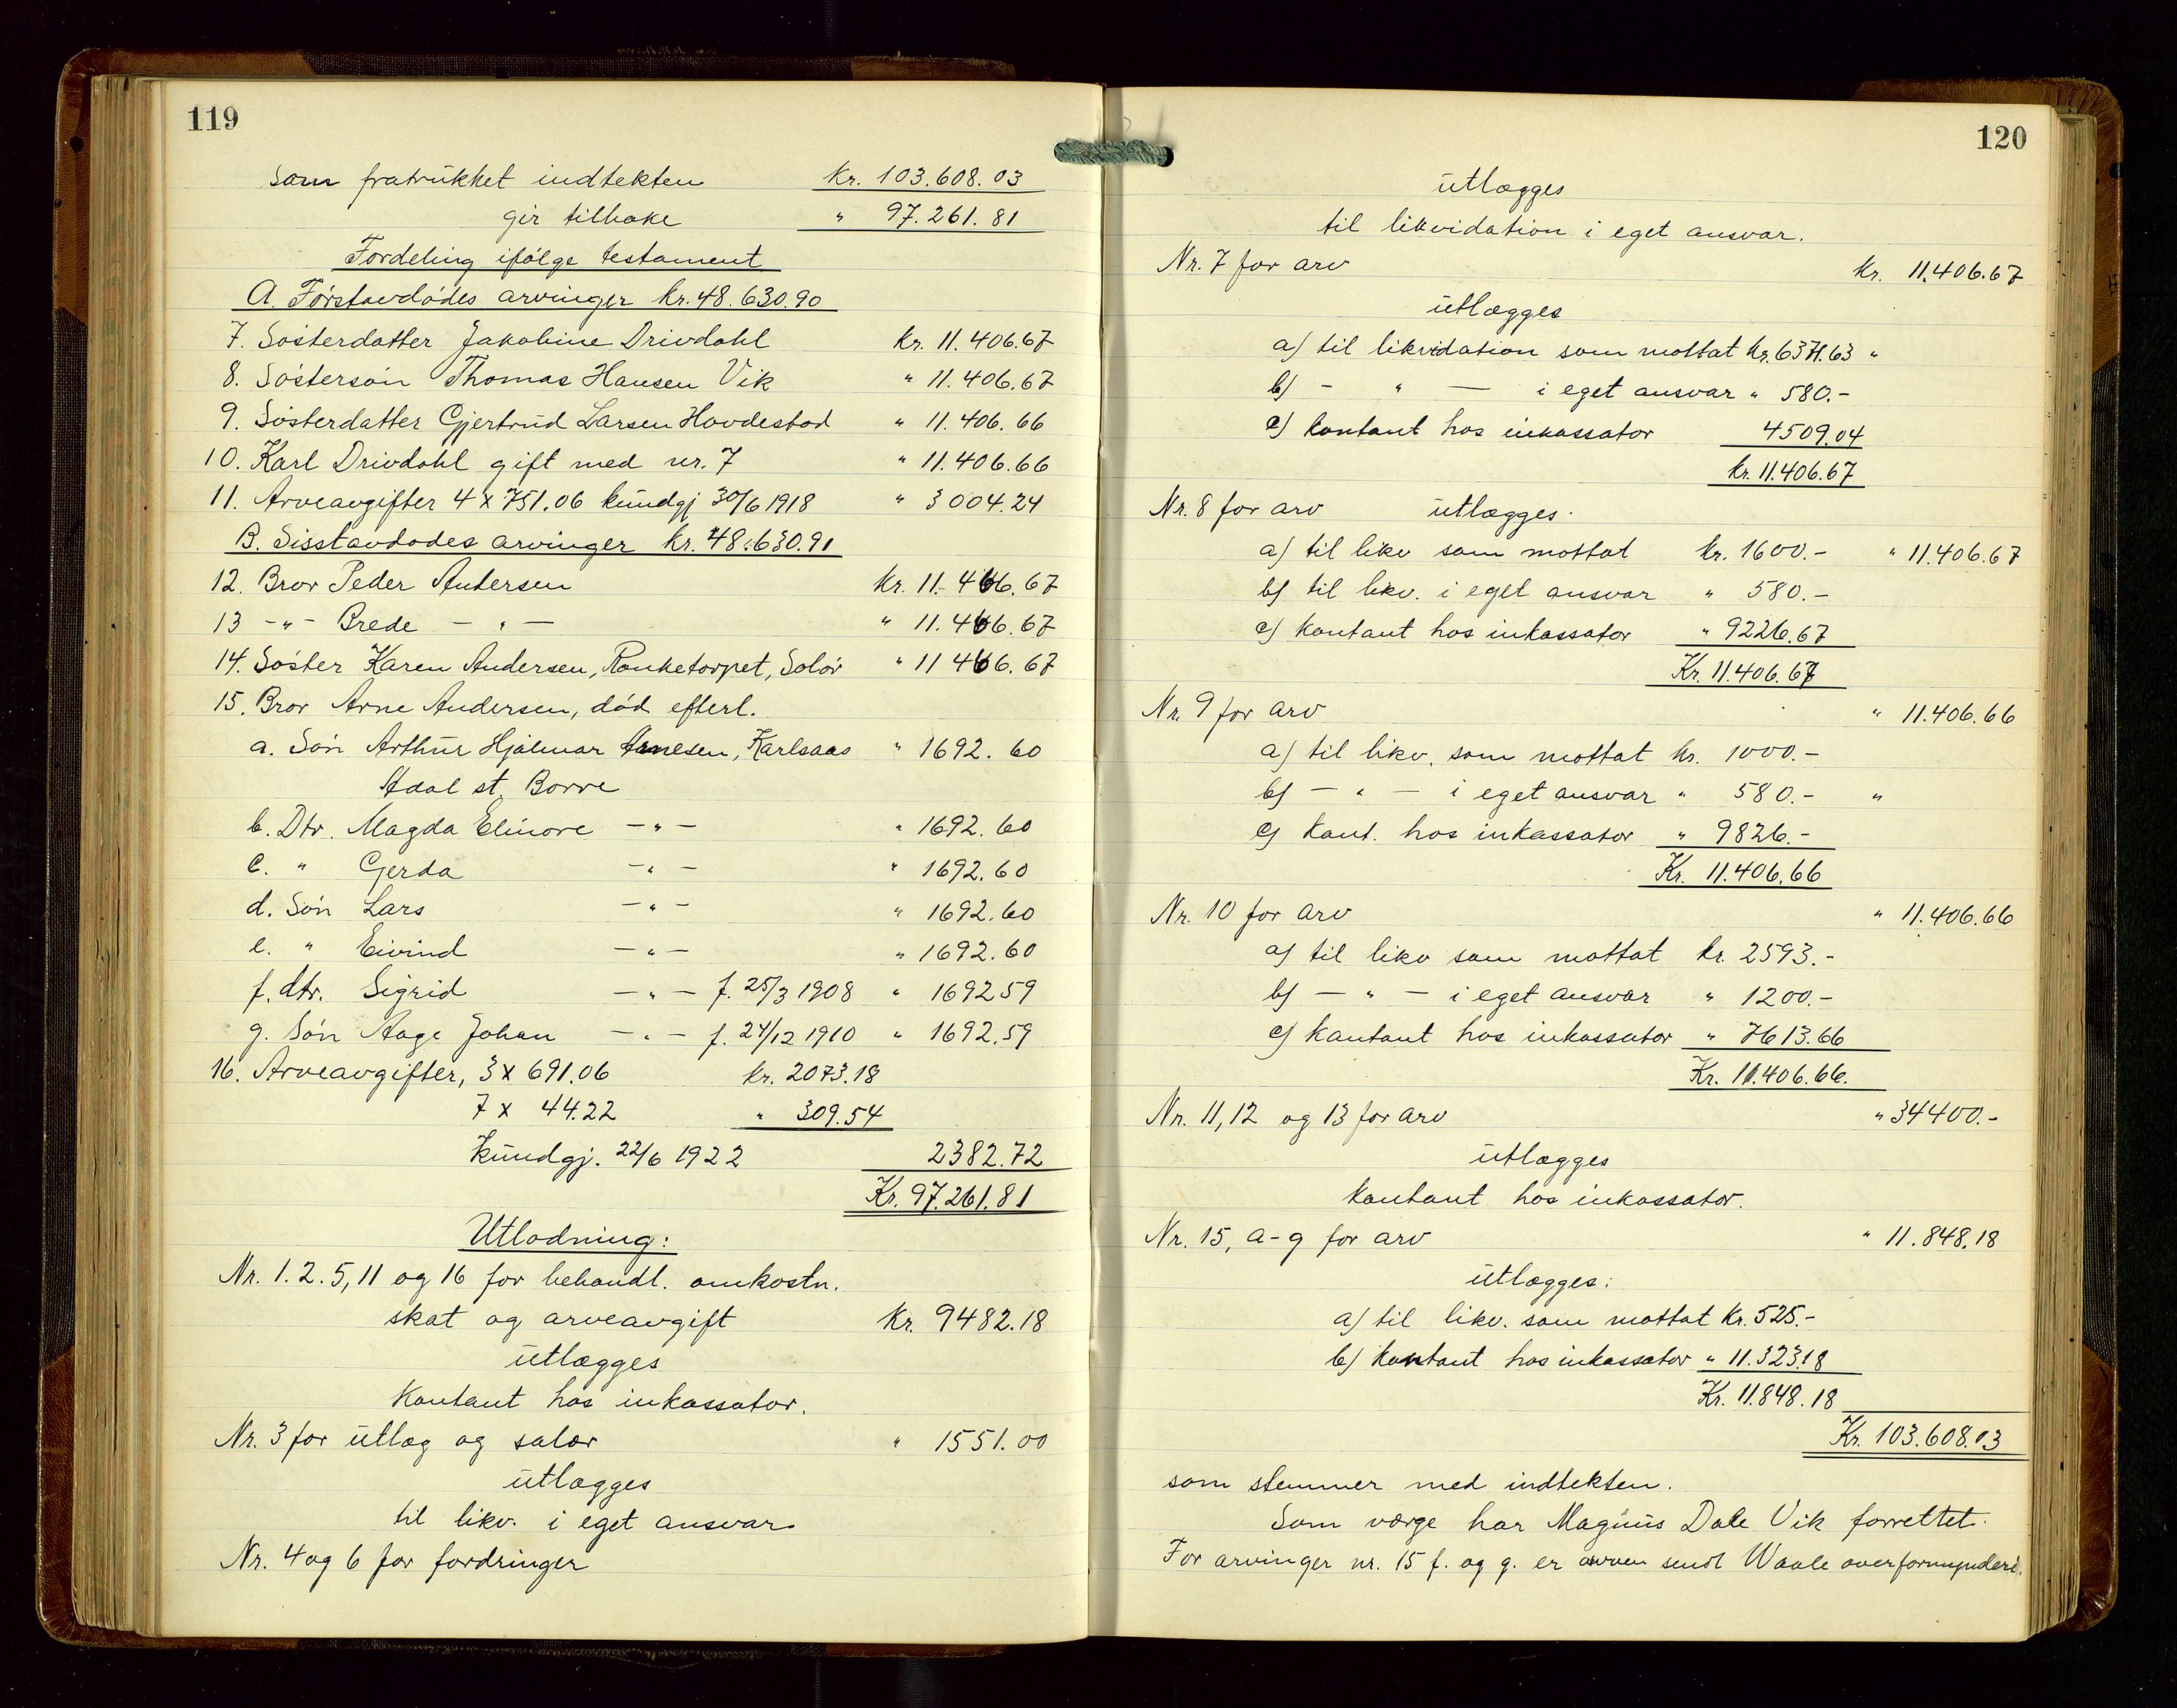 119
som fratrukket indtekten Kr. 103.608.03
gir tilbake " 97.261.81
Fordeling ifølge testament
A. Førstavdødes arvinger kr. 48.630.90
7. Søsterdatter Jakobine Drivdahl Kr. 11.406.67
8. Søstersøn Thomas Hansen Vik " 11.406.67
9. Søsterdatter Gjertrud Larsen Hovdestad " 11.406.66
10. Karl Drivdahl gift med nr. 7 " 11.406.66
11. Arveavgifter 4 x 751.06 kundgj 30/6 1918 " 3004.24
B. Sisstavdødes arvinger Kr. 48.630.91
12. Bror Peder Andersen Kr. 11.466.67
13 -"- Brede - " - " 11.466.67
14. Søster Karen Andersen, Ranketorpet, Solør " 11466.67
15. Bror Arne Andersen, død efterl.
a. Søn Arthur Hjalmar Arnesen, Karlsaas " 1692.60
Adal st. Borre
b. Dtr. Magda Elinore -"- " 1692.60
c. " Gerda -"- " 1692.60
d. Søn Lars -"- " 1692.60
e. " Eivind -"- " 1692.60
f. dtr. Sigrid -"- f. 25/3 1908 " 1692.59
g. Søn Aage Johan -"- f. 24/12 1910 " 1692.59
16. Arveavgifter, 3 x 691.06 Kr. 2073.18
7 x 44.22 " 309.54
Kundgj. 22/6 1922 2382.72
Kr. 97.261.81
Utlodning:
Nr. 1. 2. 5, 11 og 16 for behandl. omkostn.
skat og arveavgift Kr. 9482.18
utlægges
kontant hos inkassator.
Nr. 3 for utlæg og salær " 1551.00
utlægges
til likv. i eget ansvar
Nr. 4 og 6 for fordringer
120
utlægges
til likvidation i eget ansvar.
Nr. 7 for arv Kr. 11.406.67
utlægges
a) til likvidation som mottat Kr. 6371.63 "
b) - " - i eget ansvar " 580.-
c) kontant hos inkassator 4509.04
Kr. 11.406.67
Nr. 8 for arv utlægges.
a) til likv som mottat Kr. 1600.- " 11.406.67
b) til likv. i eget ansvar " 580.-
c) kontant hos inkassator " 9226.67
Kr. 11.406.67
Nr. 9 for arv " 11.406.66
a) til likv. som mottat Kr. 1000.-
b) - " - i eget ansvar " 580.- "
c) kont. hos inkassator " 9826.-
Kr. 11.406.66
Nr. 10 for arv " 11.406.66
a) til likv som mottat kr. 2593.-
b) - " - i eget ansvar " 1200.-
c) kontant hos inkassator " 7613.66
Kr. 11.406.66.
Nr. 11, 12 og 13 for arv " 34400.-
utlægges
kontant hos inkassator.
Nr. 15, a-g for arv " 11.848.18
utlægges:
a) til likv. som mottat Kr. 525.-
b) kontant hos inkassator " 11.323.18
Kr. 11.848.18
Kr. 103.608.03
som stemmer med indtekten.
Som værge har Magnus Dale Vik forrettet.
For arvinger nr. 15 f. og g. er arven sendt Waale overformynderi.